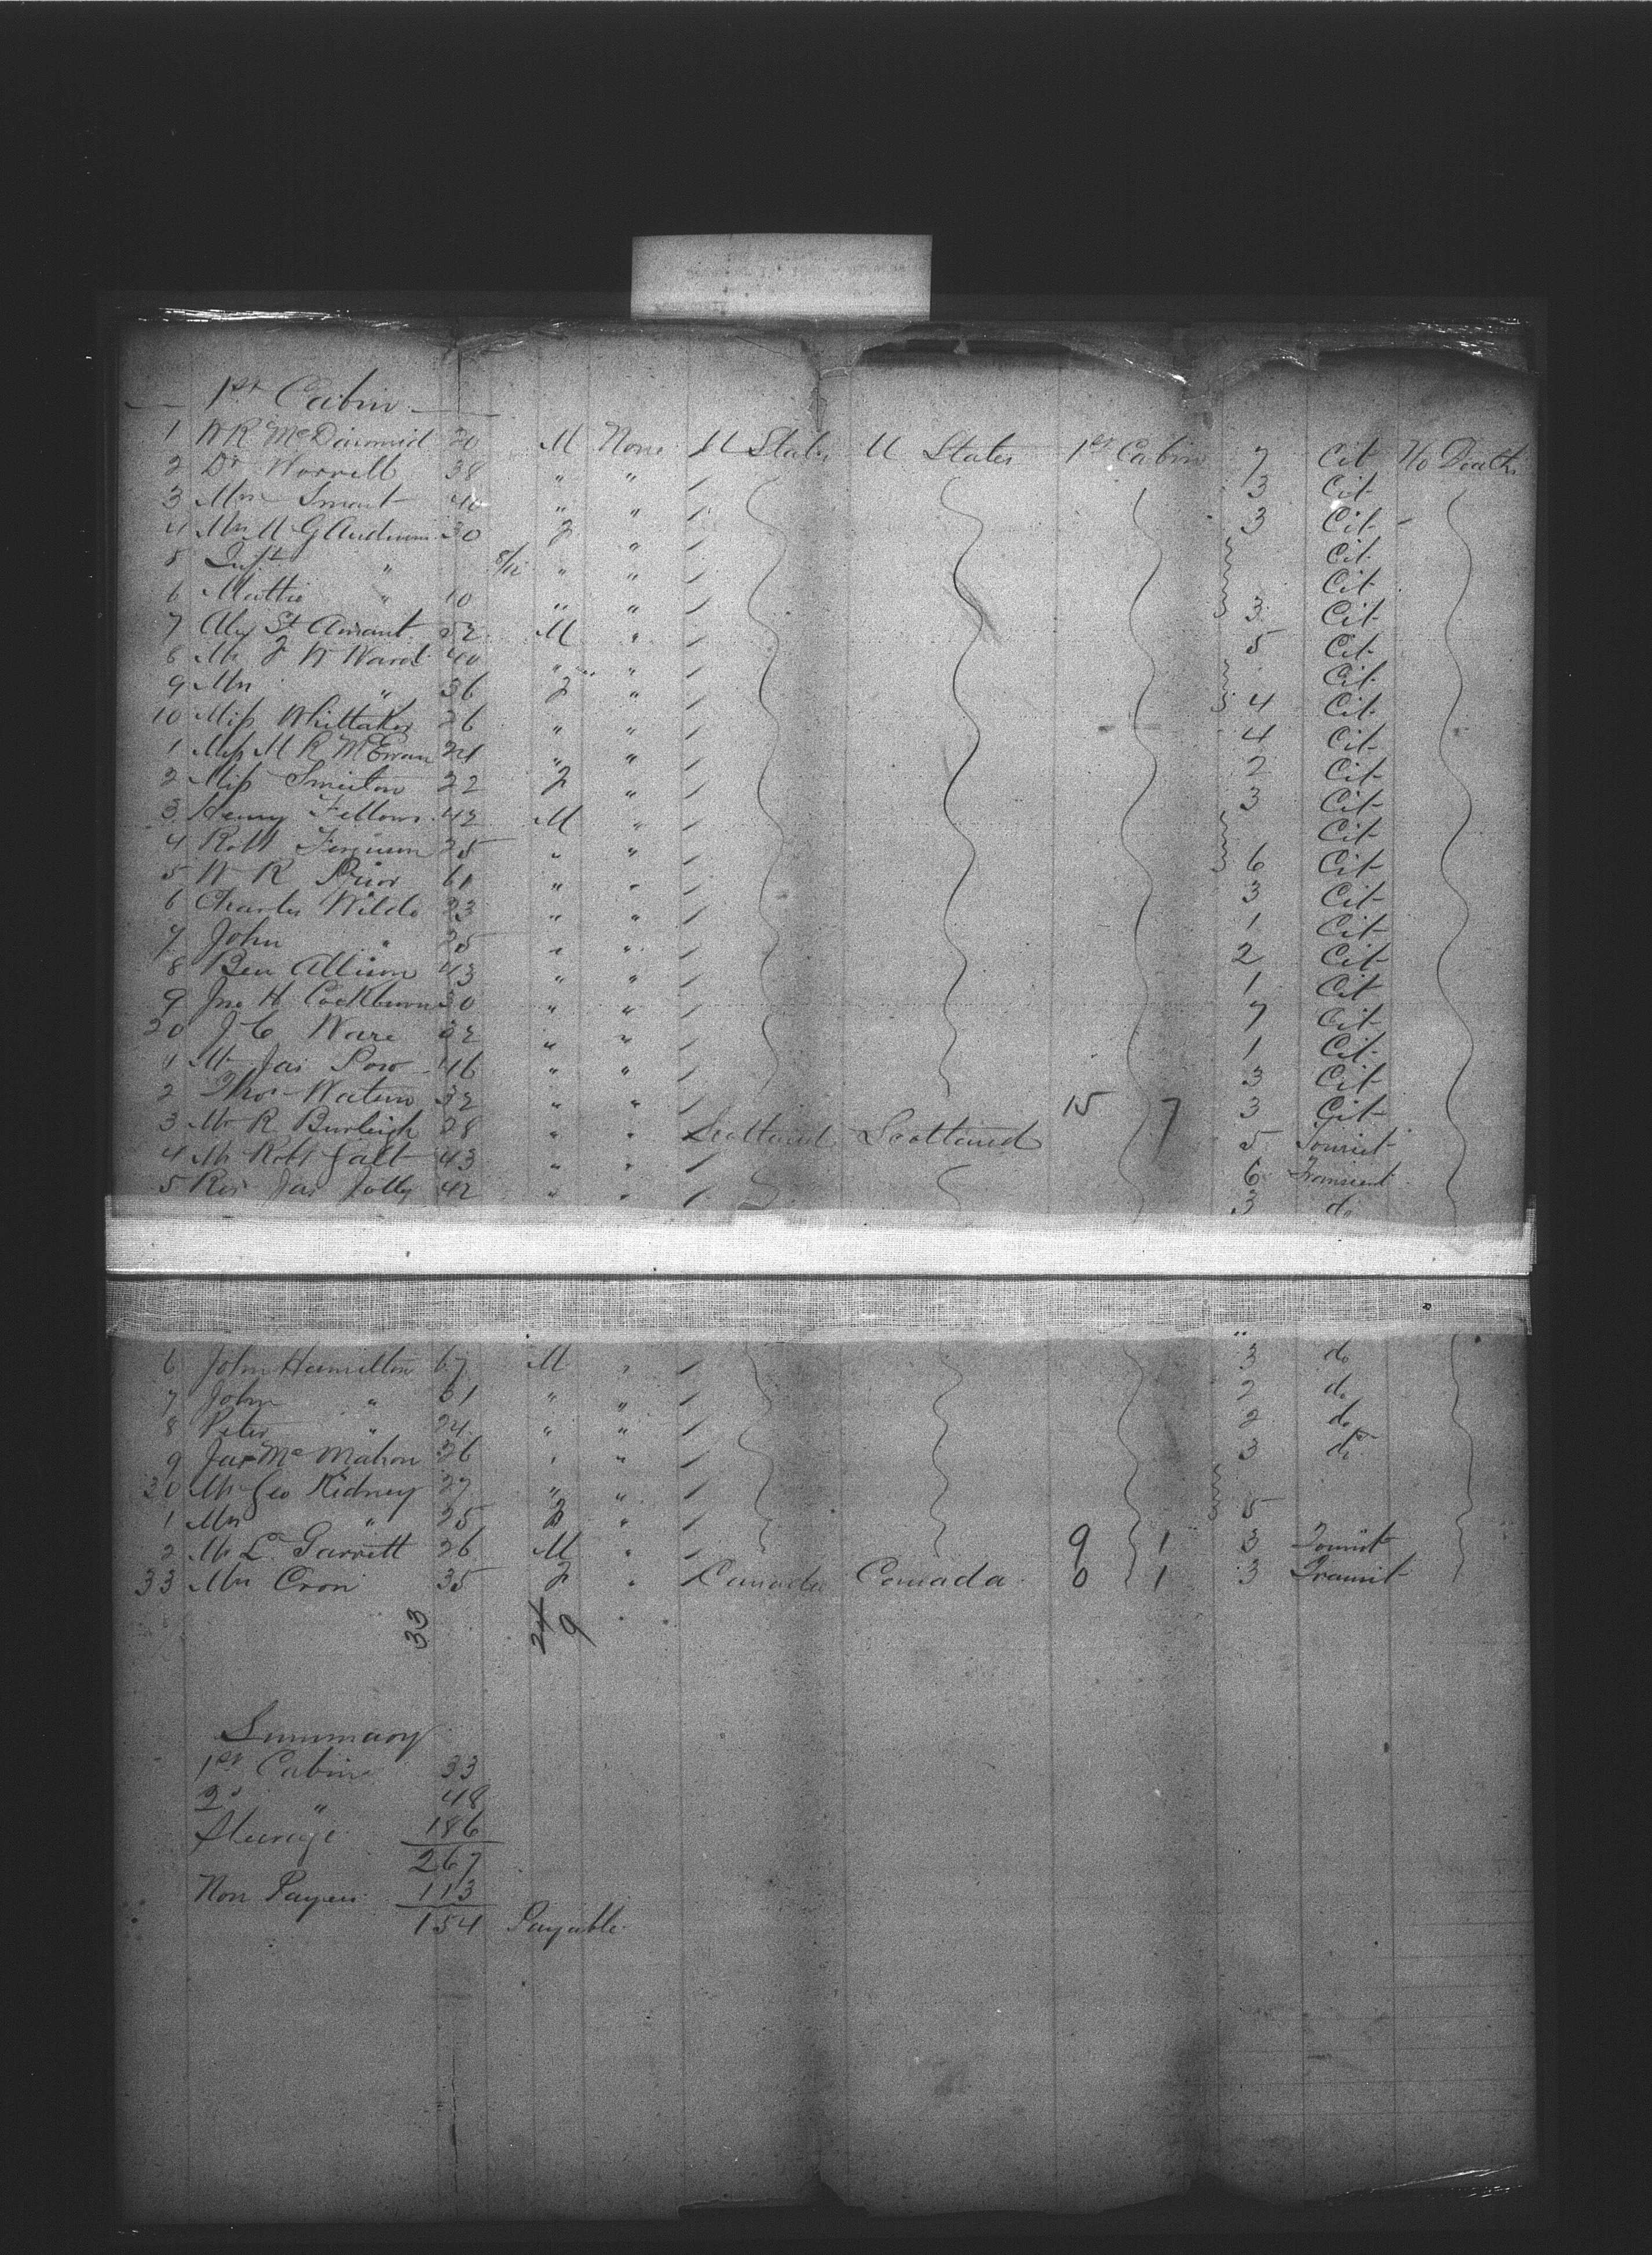 1st Cabin
1 W R McDiarmid 20 M None U States U States 1st Cabin 7 Cit No Deaths
2 Dr Worrell 38 " " 3 Cit
3 Mr Smart 40 " " 3 Cit
4 Mrs M G Anderson 30 F " Cit
5 Inft " 8/12 " " Cit
6 Mattie " 10 " " 3 Cit
7 Alex St Amant 52 M " 5 Cit
8 Mr J W Ward 40 " " Cit
9 Mrs " 36 F " 4 Cit
10 Miss Whittaker 26 " " 4 Cit
1 Miss M R McEwan 24 " " 2 Cit
2 Miss Smeiton 22 F " 3 Cit
3 Henry Fellows 42 M " Cit
4 Robt Ferguson 25 " " 6 Cit
5 W R Prior 61 " " 3 Cit
6 Charles Wilde 23 " " 1 Cit
7 John " 25 " " 2 Cit
8 Ben Allison 43 " " 1 Cit
9 Jno H Cockburn 30 " " 7 Cit
20 J C Ware 32 " " 1 Cit
1 Mr Jas Pow 46 " " 3 Cit
2 Thos Watson 32 " " 15 7 3 Cit
3 Mr R Burleigh 28 " " Scotland Scotland 5 Tourist
4 Mr Robt Galt 43 " " 6 Transient
5 Rev Jas Jolly 42 " " 3 do
6 John Hamilton 67 M " 3 do
7 John " 31 " " 2 do
8 Peter " 24 " " 2 do
9 Jas McMahon 36 " " 3 do
30 Mr Geo Kidney 27 " "
1 Mrs " 25 F " 5
2 Mr L. Garrett 26 M " 9 1 3 Tourist
33 Mrs Cron 35 F " Canada Canada 0 1 3 Transit
33 24 9
Summary
1st Cabin 33
2d " 48
Steerage 186
267
Non Payers 113
154 Payable